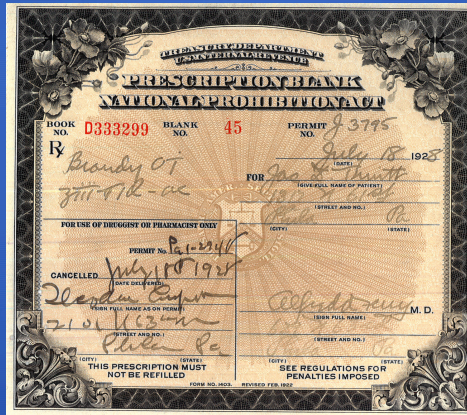 TREASURY DEPARTMENT
U.S. INTERNAL REVENUE
PRESCRIPTION BLANK
NATIONAL PROHIBITION ACT
BOOK NO. D333299 BLANK NO. 45 PERMIT NO. J 3795
July 18 1928
(DATE)
℞
Brandy
FOR Jas
(GIVE FULL NAME OF PATIENT)
(STREET AND NO.)
Phila Pa
(CITY) (STATE)
FOR USE OF DRUGGIST OR PHARMACIST ONLY
PERMIT NO. Pa
CANCELLED July 18 1928
(DATE DELIVERED)
(SIGN FULL NAME AS ON PERMIT)
(STREET AND NO.)
Phila Pa
(CITY) (STATE)
Alfred M.D.
(SIGN FULL NAME)
(STREET AND NO.)
(CITY) (STATE)
THIS PRESCRIPTION MUST
NOT BE REFILLED
SEE REGULATIONS FOR
PENALTIES IMPOSED
FORM NO. 1403. REVISED FEB. 1922